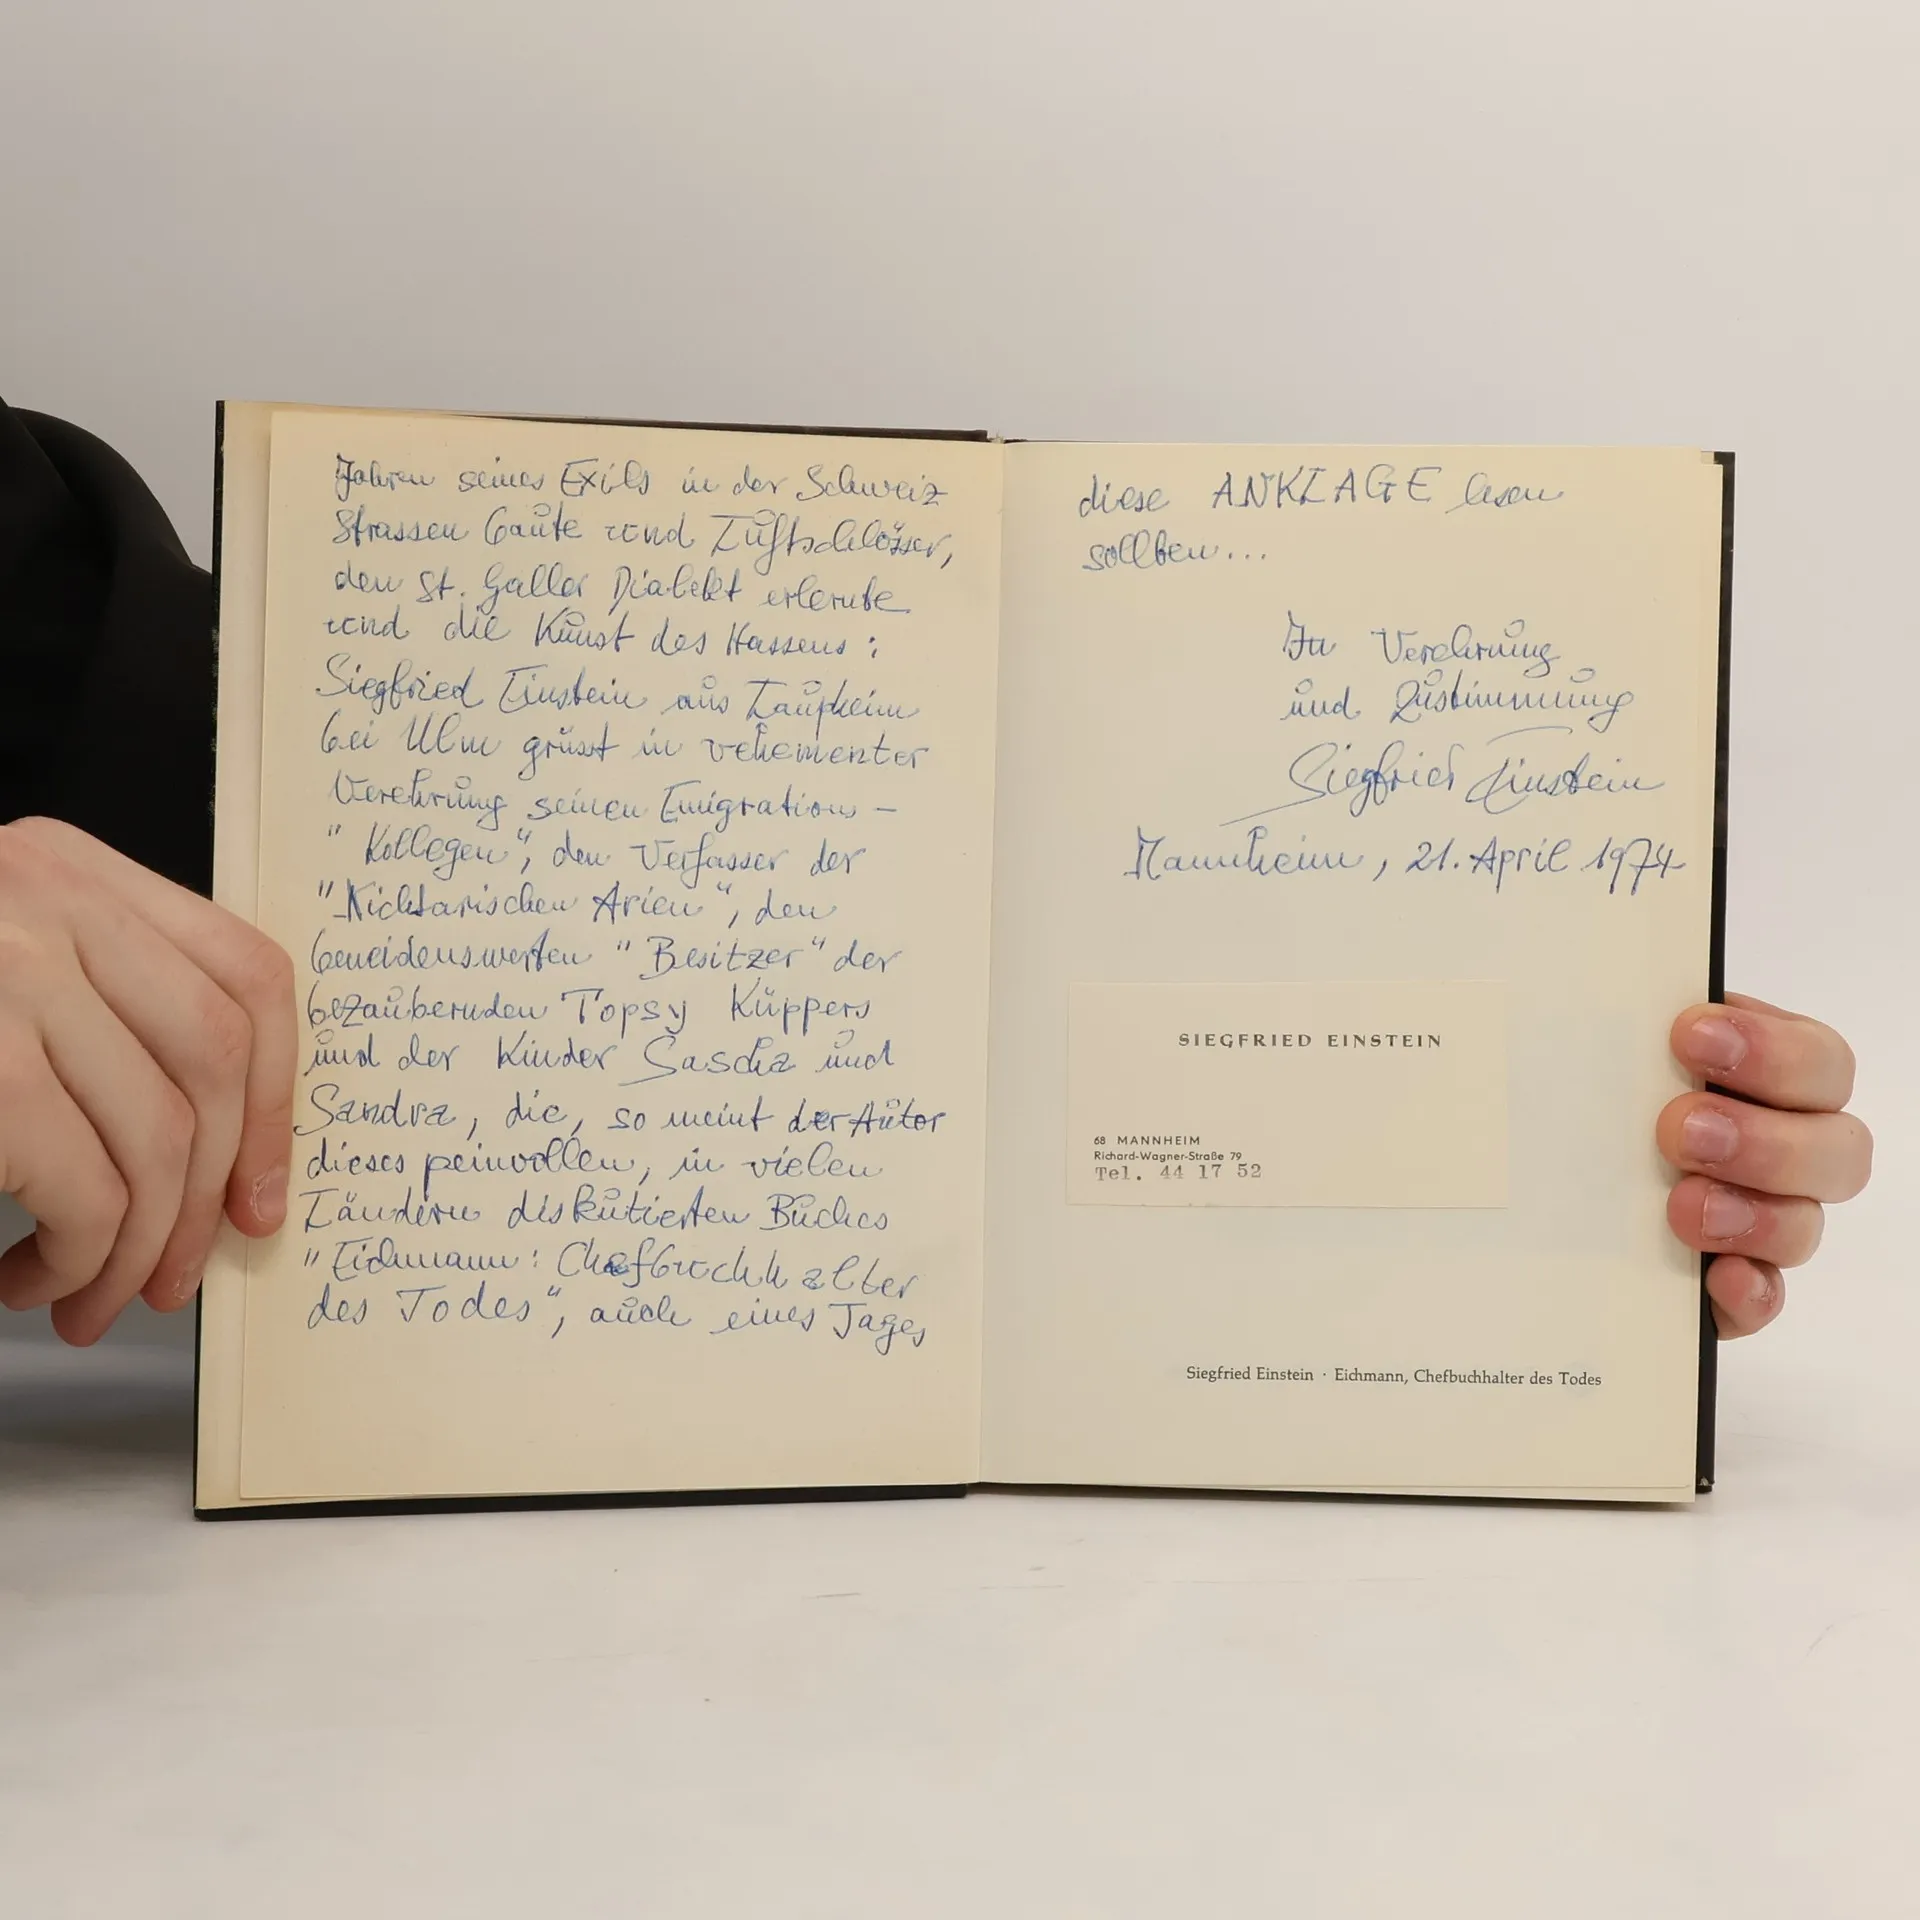 Jahren seines Exils in der Schweiz
Strassen baute und Luftschlösser,
den St. Galler Dialekt erlernte
und die Kunst des Hassens:
Siegfried Einstein aus Laupheim
bei Ulm grüsst in vehementer
Verehrung seinen Emigrations-
"Kollegen", den Verfasser der
"Nichtarischen Arien", den
beneidenswerten "Besitzer" der
bezaubernden Topsy Küppers
und der Kinder Sascha und
Sandra, die, so meint der Autor
dieses peinvollen, in vielen
Ländern diskutierten Buches
"Eichmann: Chefbuchhalter
des Todes", auch eines Tages
diese ANKLAGE lesen
sollten...
In Verehrung
und Zustimmung
Siegfried Einstein
Mannheim, 21. April 1974
SIEGFRIED EINSTEIN
68 MANNHEIM
Richard-Wagner-Straße 79
Tel. 44 17 52
Siegfried Einstein · Eichmann, Chefbuchhalter des Todes